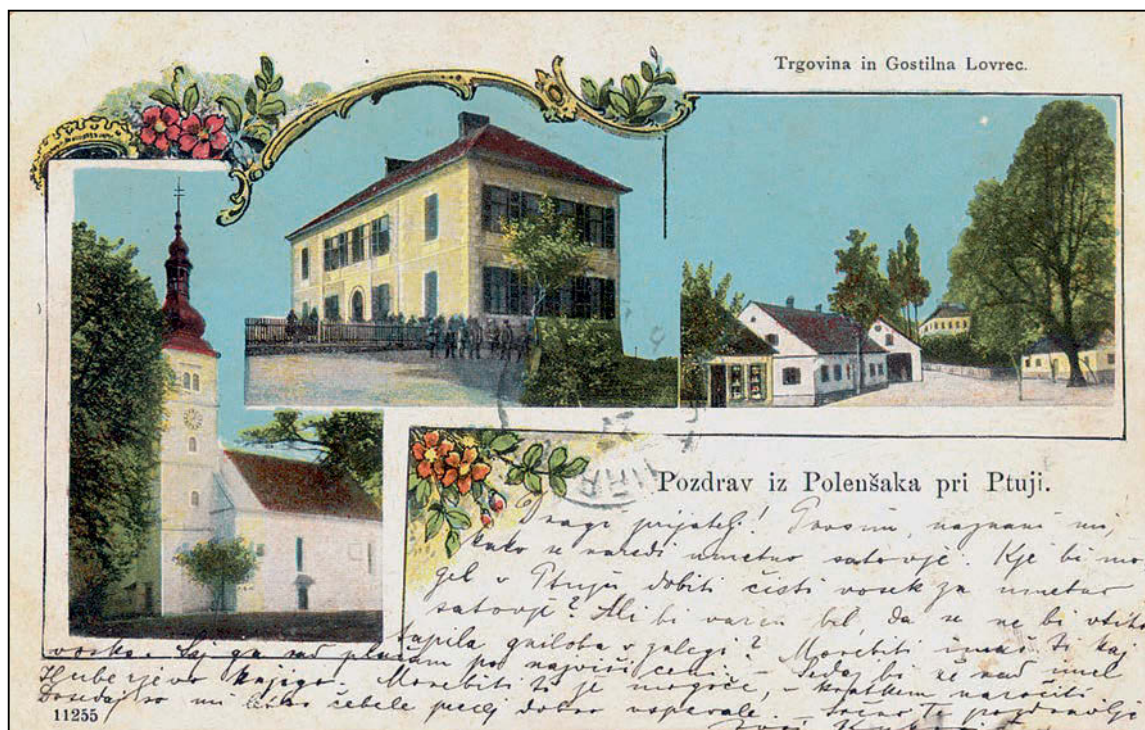 Trgovina in Gostilna Lovrec.
Pozdrav iz Polenšaka pri Ptuji.
Dragi prijatelj! Prosim, naznani mi,
kako se naredi umetno satovje. Kje bi mo
gel v Ptuju dobiti čisti vosek za umetno
satovje? Ali bi varen bil, da se ne bi
kupila gniloba v zalegi? Morebiti imaš ti kaj
voska. Saj ga rad plačam po najvišji ceni. – Sedaj bi še rad imel
Huberjevo knjigo. Morebiti ti je mogoče, – kratkem naročiti
Dosedaj so mi letos čebele precej dobro uspevale. – Srčno Te pozdravlja
11255